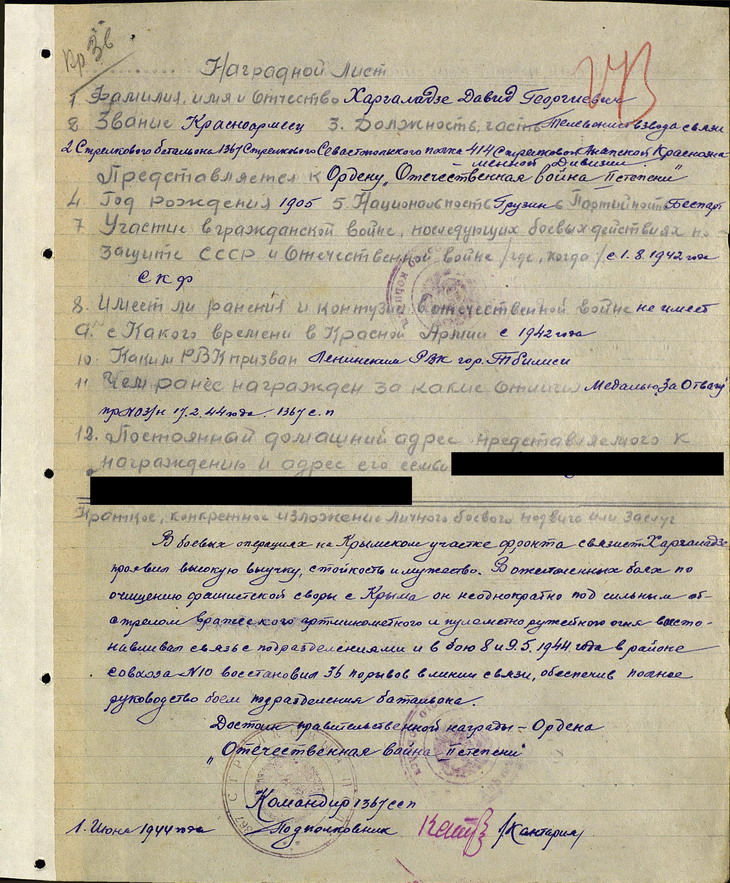 пр 3в
Наградной Лист
1. Фамилия, имя и Отчество Харгаладзе Давид Георгиевич
2 Звание Красноармеец 3. Должность, часть Телефонист взвода связи
2 Стрелкового батальона 1367 Стрелкового Севастопольского полка 414 Стрелковой Анапской Краснозна
менной Дивизии
Представляется к Ордену "Отечественная война II степени"
4 Год рождения 1905 5 Национальность Грузин 6 Партийность Беспарт
7 Участие в гражданской войне, последующих боевых действиях по
защите СССР и Отечественной войне /где, когда/ с 1.8.1942 года
СКФ
8. Имеет ли ранения и контузии в отечественной войне не имеет
9. с Какого времени в Красной Армии с 1942 года
10. Каким РВК призван Ленинским РВК гор. Тбилиси
11 Чем ранее награжден за какие отличия Медалью "За Отвагу"
пр № 03/н 17.2.44 года. 1367 с.п
12. Постоянный домашний адрес представляемого к
награждению и адрес его семьи
Краткое, конкретное изложение личного боевого подвига или заслуг
В боевых операциях на Крымском участке фронта связист Харгаладзе
проявил высокую выучку, стойкость и мужество. В ожесточенных боях по
очищению фашистской своры с Крыма он неоднократно под сильным об-
стрелом вражеского артминометного и пулеметно ружейного огня восста-
навливал связь с подразделениями и в бою 8 и 9.5.1944 года в районе
совхоза №10 восстановил 36 порывов в линии связи, обеспечив полное
руководство боем подразделения батальона.
Достоин правительственной награды – Ордена
"Отечественная война II степени"
Командир 1367 сп
1. Июня 1944 года Подполковник /Кантария/